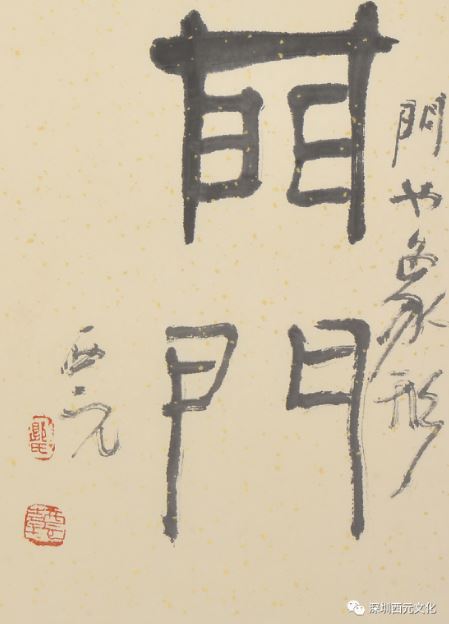 門也象形
門
門
西元
深圳西元文化